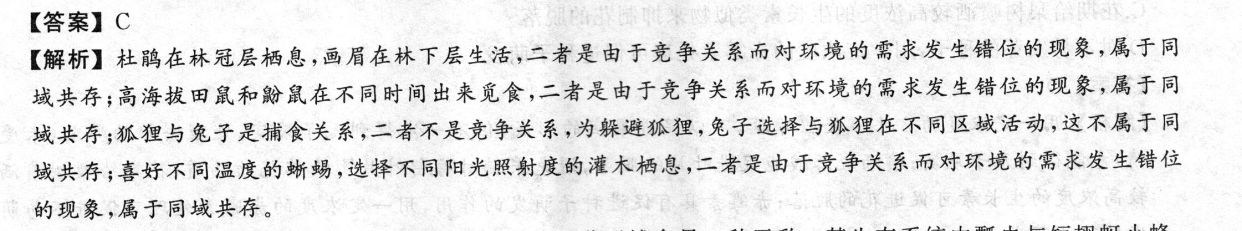 【答案】C
【解析】杜鹃在林冠层栖息,画眉在林下层生活,二者是由于竞争关系而对环境的需求发生错位的现象,属于同
域共存;高海拔田鼠和鼢鼠在不同时间出来觅食,二者是由于竞争关系而对环境的需求发生错位的现象,属于同
域共存;狐狸与兔子是捕食关系,二者不是竞争关系,为躲避狐狸,兔子选择与狐狸在不同区域活动,这不属于同
域共存;喜好不同温度的蜥蜴,选择不同阳光照射度的灌木栖息,二者是由于竞争关系而对环境的需求发生错位
的现象,属于同域共存。